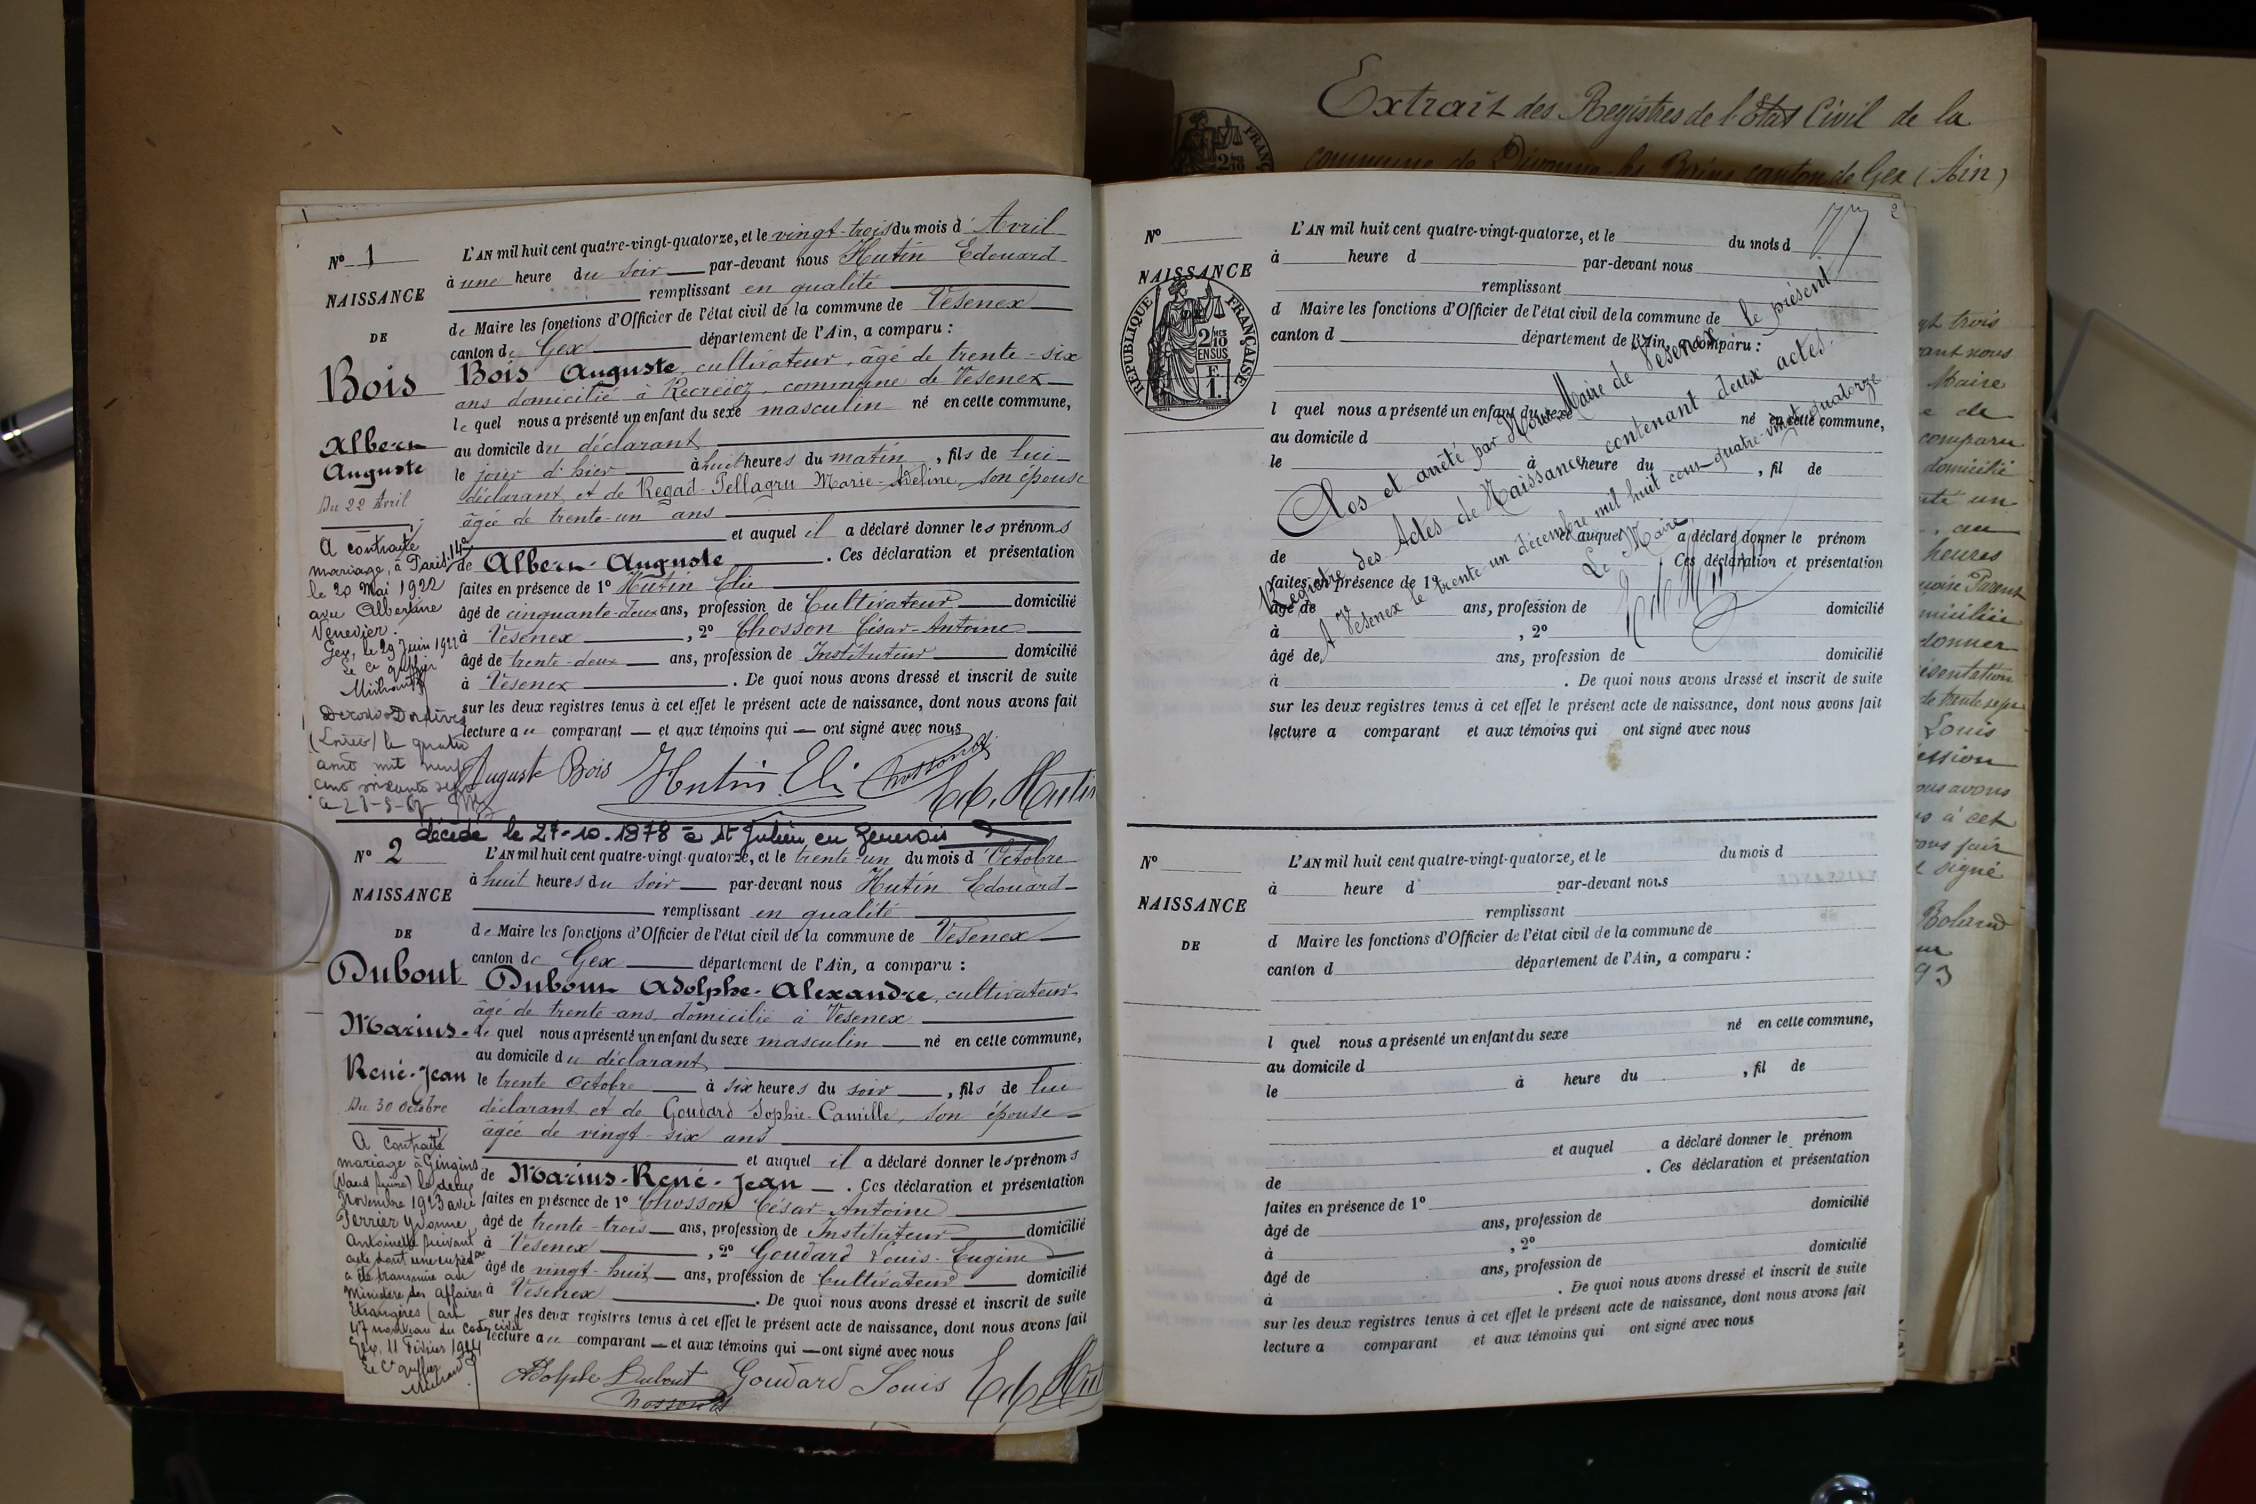 Nº 1
NAISSANCE
DE
Bois
Albert
Auguste
Du 22 Avril
A contracté
mariage, à Paris, 14e
le 20 Mai 1922
avec Albertine
Venevier.
Gex, le 29 Juin 1922
Le Cs greffier
Décédé à Dordives
(Loiret) le quatre
août mil neuf
cent soixante sept
L'AN mil huit cent quatre-vingt-quatorze, et le vingt-trois du mois d'Avril
à une heure du soir par-devant nous Hutin Edouard
remplissant en qualité
de Maire les fonctions d'Officier de l'état civil de la commune de Vesenex
canton de Gex département de l'Ain, a comparu :
Bois Auguste, cultivateur, âgé de trente-six
ans domicilié à commune de Vesenex
le quel nous a présenté un enfant du sexe masculin né en cette commune,
au domicile du déclarant
le jour d'hier à huit heures du matin, fils de lui
déclarant et de Regad-Pellagru Marie-Adeline, son épouse
âgée de trente-un ans
et auquel il a déclaré donner les prénoms
de Albert-Auguste. Ces déclaration et présentation
faites en présence de 1º Hutin Elie
âgé de cinquante-deux ans, profession de Cultivateur domicilié
à Vesenex, 2º Chosson César-Antoine
âgé de trente-deux ans, profession de Instituteur domicilié
à Vesenex. De quoi nous avons dressé et inscrit de suite
sur les deux registres tenus à cet effet le présent acte de naissance, dont nous avons fait
lecture au comparant et aux témoins qui ont signé avec nous
Auguste Bois Hutin Eli Chosson Ed. Hutin
décédé le 27-10-1978 à St Julien en Genevois
Nº 2
NAISSANCE
DE
Dubout
Marius-
René-Jean
Du 30 Octobre
A contracté
mariage à Gingins
(Vaud Suisse) le deux
Novembre 1923 avec
Perrier Yvonne
Antoinette suivant
acte dont une expéd on
a été transmise au
Ministère des Affaires
Etrangères (art
47 nouveau du Code civil
Gex, 11 Février 1924
Le Cs greffier
L'AN mil huit cent quatre-vingt-quatorze, et le trente-un du mois d'Octobre
à huit heures du soir par-devant nous Hutin Edouard
remplissant en qualité
de Maire les fonctions d'Officier de l'état civil de la commune de Vesenex
canton de Gex département de l'Ain, a comparu :
Dubout Adolphe-Alexandre, cultivateur
âgé de trente ans, domicilié à Vesenex
le quel nous a présenté un enfant du sexe masculin né en cette commune,
au domicile du déclarant
le trente Octobre à six heures du soir, fils de lui
déclarant et de Goudard Sophie-Camille, son épouse
âgée de vingt-six ans
et auquel il a déclaré donner les prénoms
de Marius-René-Jean. Ces déclaration et présentation
faites en présence de 1º Chosson César-Antoine
âgé de trente-trois ans, profession de Instituteur domicilié
à Vesenex, 2º Goudard Louis-Eugène
âgé de vingt-huit ans, profession de Cultivateur domicilié
à Vesenex. De quoi nous avons dressé et inscrit de suite
sur les deux registres tenus à cet effet le présent acte de naissance, dont nous avons fait
lecture au comparant et aux témoins qui ont signé avec nous
Adolphe Dubout Goudard Louis Ed. Hut
Chosson
Extrait des Registres de l'Etat Civil de la
commune de Divonne les Bains canton de Gex (Ain)
2
Nº
NAISSANCE
RÉPUBLIQUE FRANÇAISE
2/10
EN SUS
F.
1.
L'AN mil huit cent quatre-vingt-quatorze, et le du mois d
à heure d par-devant nous
remplissant
d Maire les fonctions d'Officier de l'état civil de la commune de
canton d département de l'Ain, a comparu :
l quel nous a présenté un enfant du sexe né en cette commune,
au domicile d
le à heure du , fil de
et auquel a déclaré donner le prénom
de . Ces déclaration et présentation
faites en présence de 1º
âgé de ans, profession de domicilié
à , 2º
âgé de ans, profession de domicilié
à . De quoi nous avons dressé et inscrit de suite
sur les deux registres tenus à cet effet le présent acte de naissance, dont nous avons fait
lecture a comparant et aux témoins qui ont signé avec nous
Clos et arrêté par Nous Maire de Vesenex le présent
Registre des Actes de Naissance contenant deux actes.
A Vesenex le trente-un décembre mil huit cent quatre-vingt quatorze
Le Maire
Nº
NAISSANCE
DE
L'AN mil huit cent quatre-vingt-quatorze, et le du mois d
à heure d par-devant nous
remplissant
d Maire les fonctions d'Officier de l'état civil de la commune de
canton d département de l'Ain, a comparu :
l quel nous a présenté un enfant du sexe né en cette commune,
au domicile d
le à heure du , fil de
et auquel a déclaré donner le prénom
de . Ces déclaration et présentation
faites en présence de 1º domicilié
âgé de ans, profession de
à , 2º domicilié
âgé de ans, profession de
à . De quoi nous avons dressé et inscrit de suite
sur les deux registres tenus à cet effet le présent acte de naissance, dont nous avons fait
lecture a comparant et aux témoins qui ont signé avec nous
trois
nous
Maire
de
comparu
domicilié
un
au
heures
donner
Louis
à cet
signé
93